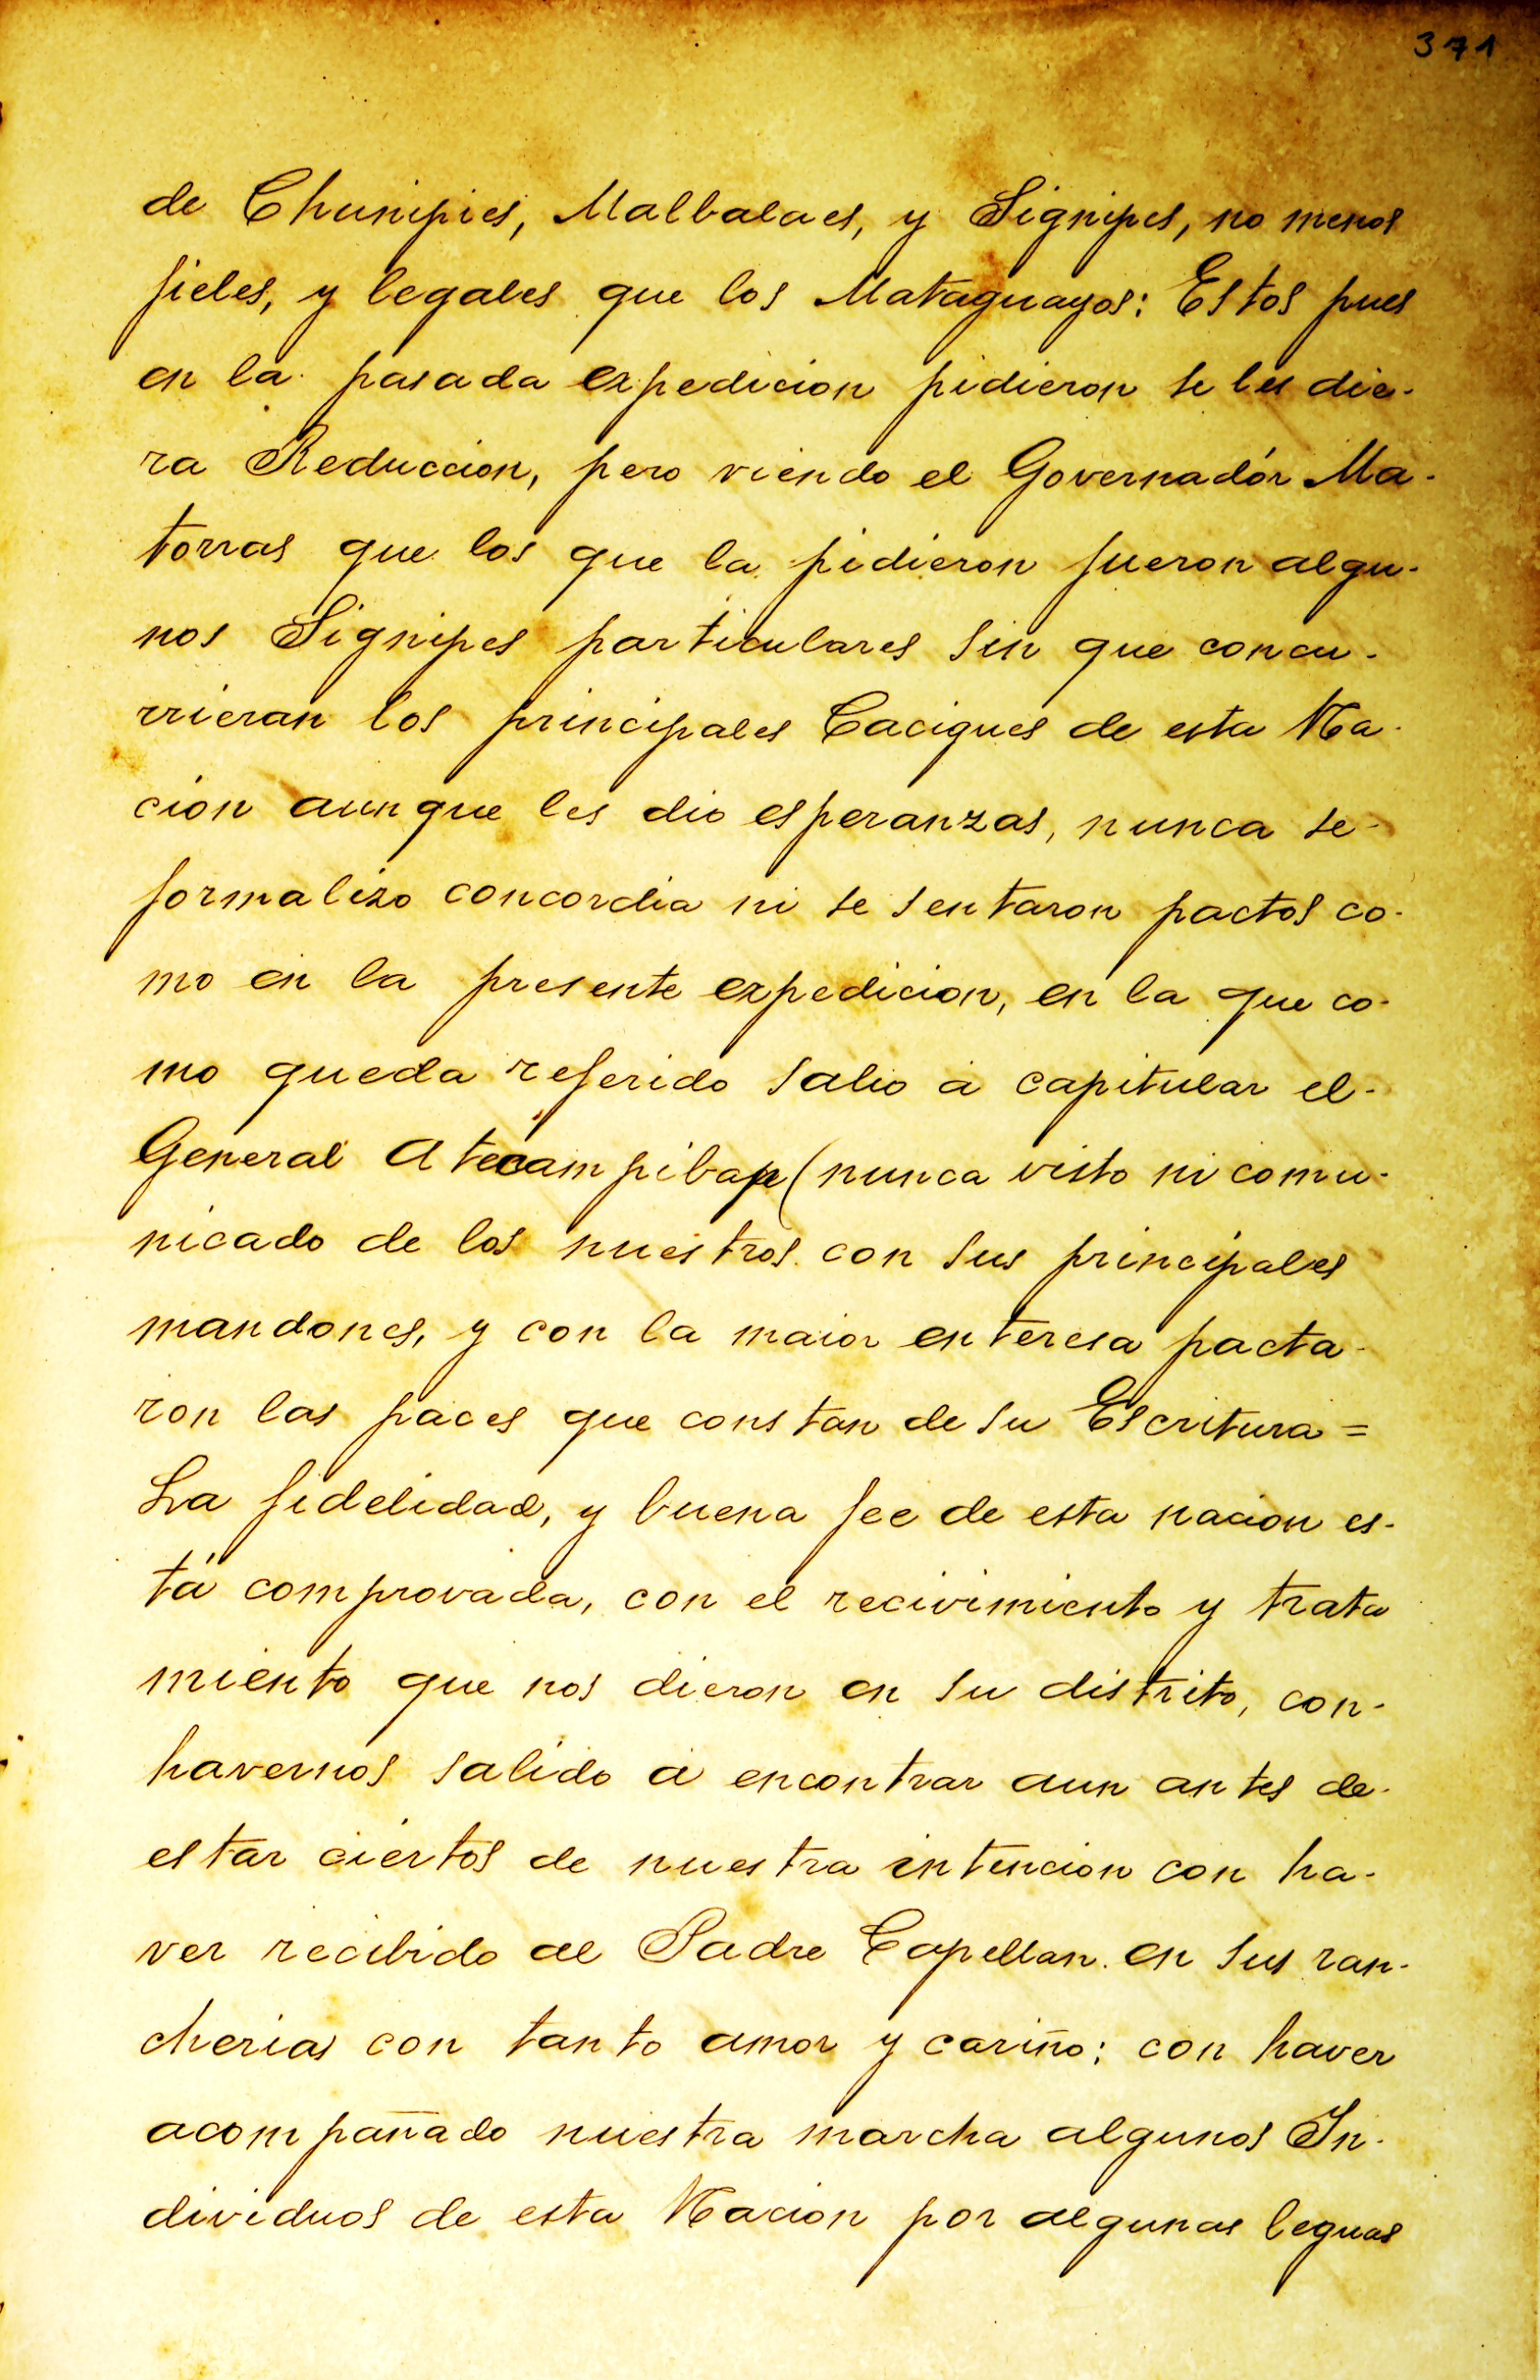 371
de Chunipies, Malbalaes, y Signipes, no menos
fieles, y legales que los Mataguayos: Estos pues
en la pasada expedicion pidieron se les die-
ra Reduccion, pero viendo el Governadór Ma-
torras que los que la pidieron fueron algu-
nos Signipes particulares sin que concu-
rrieran los principales Caciques de esta Na-
cion aunque les dio esperanzas, nunca se-
formalizo concordia ni se sentaron pactos co-
mo en la presente expedicion, en la que co-
mo queda referido salio á capitular el-
General Atecampibap (nunca visto ni comu-
nicado de los nuestros con sus principales
mandones, y con la maior enteresa pacta-
ron las paces que constan de su Escritura =
La fidelidad, y buena fee de esta nacion es-
tá comprovada, con el recivimiento y trata
miento que nos dieron en su distrito, con-
havernos salido á encontrar aun antes de-
estar ciertos de nuestra intencion con ha-
ver recibido al Padre Capellan en sus ran-
cherias con tanto amor y cariño; con haver
acompañado nuestra marcha algunos In-
dividuos de esta Nacion por algunas leguas